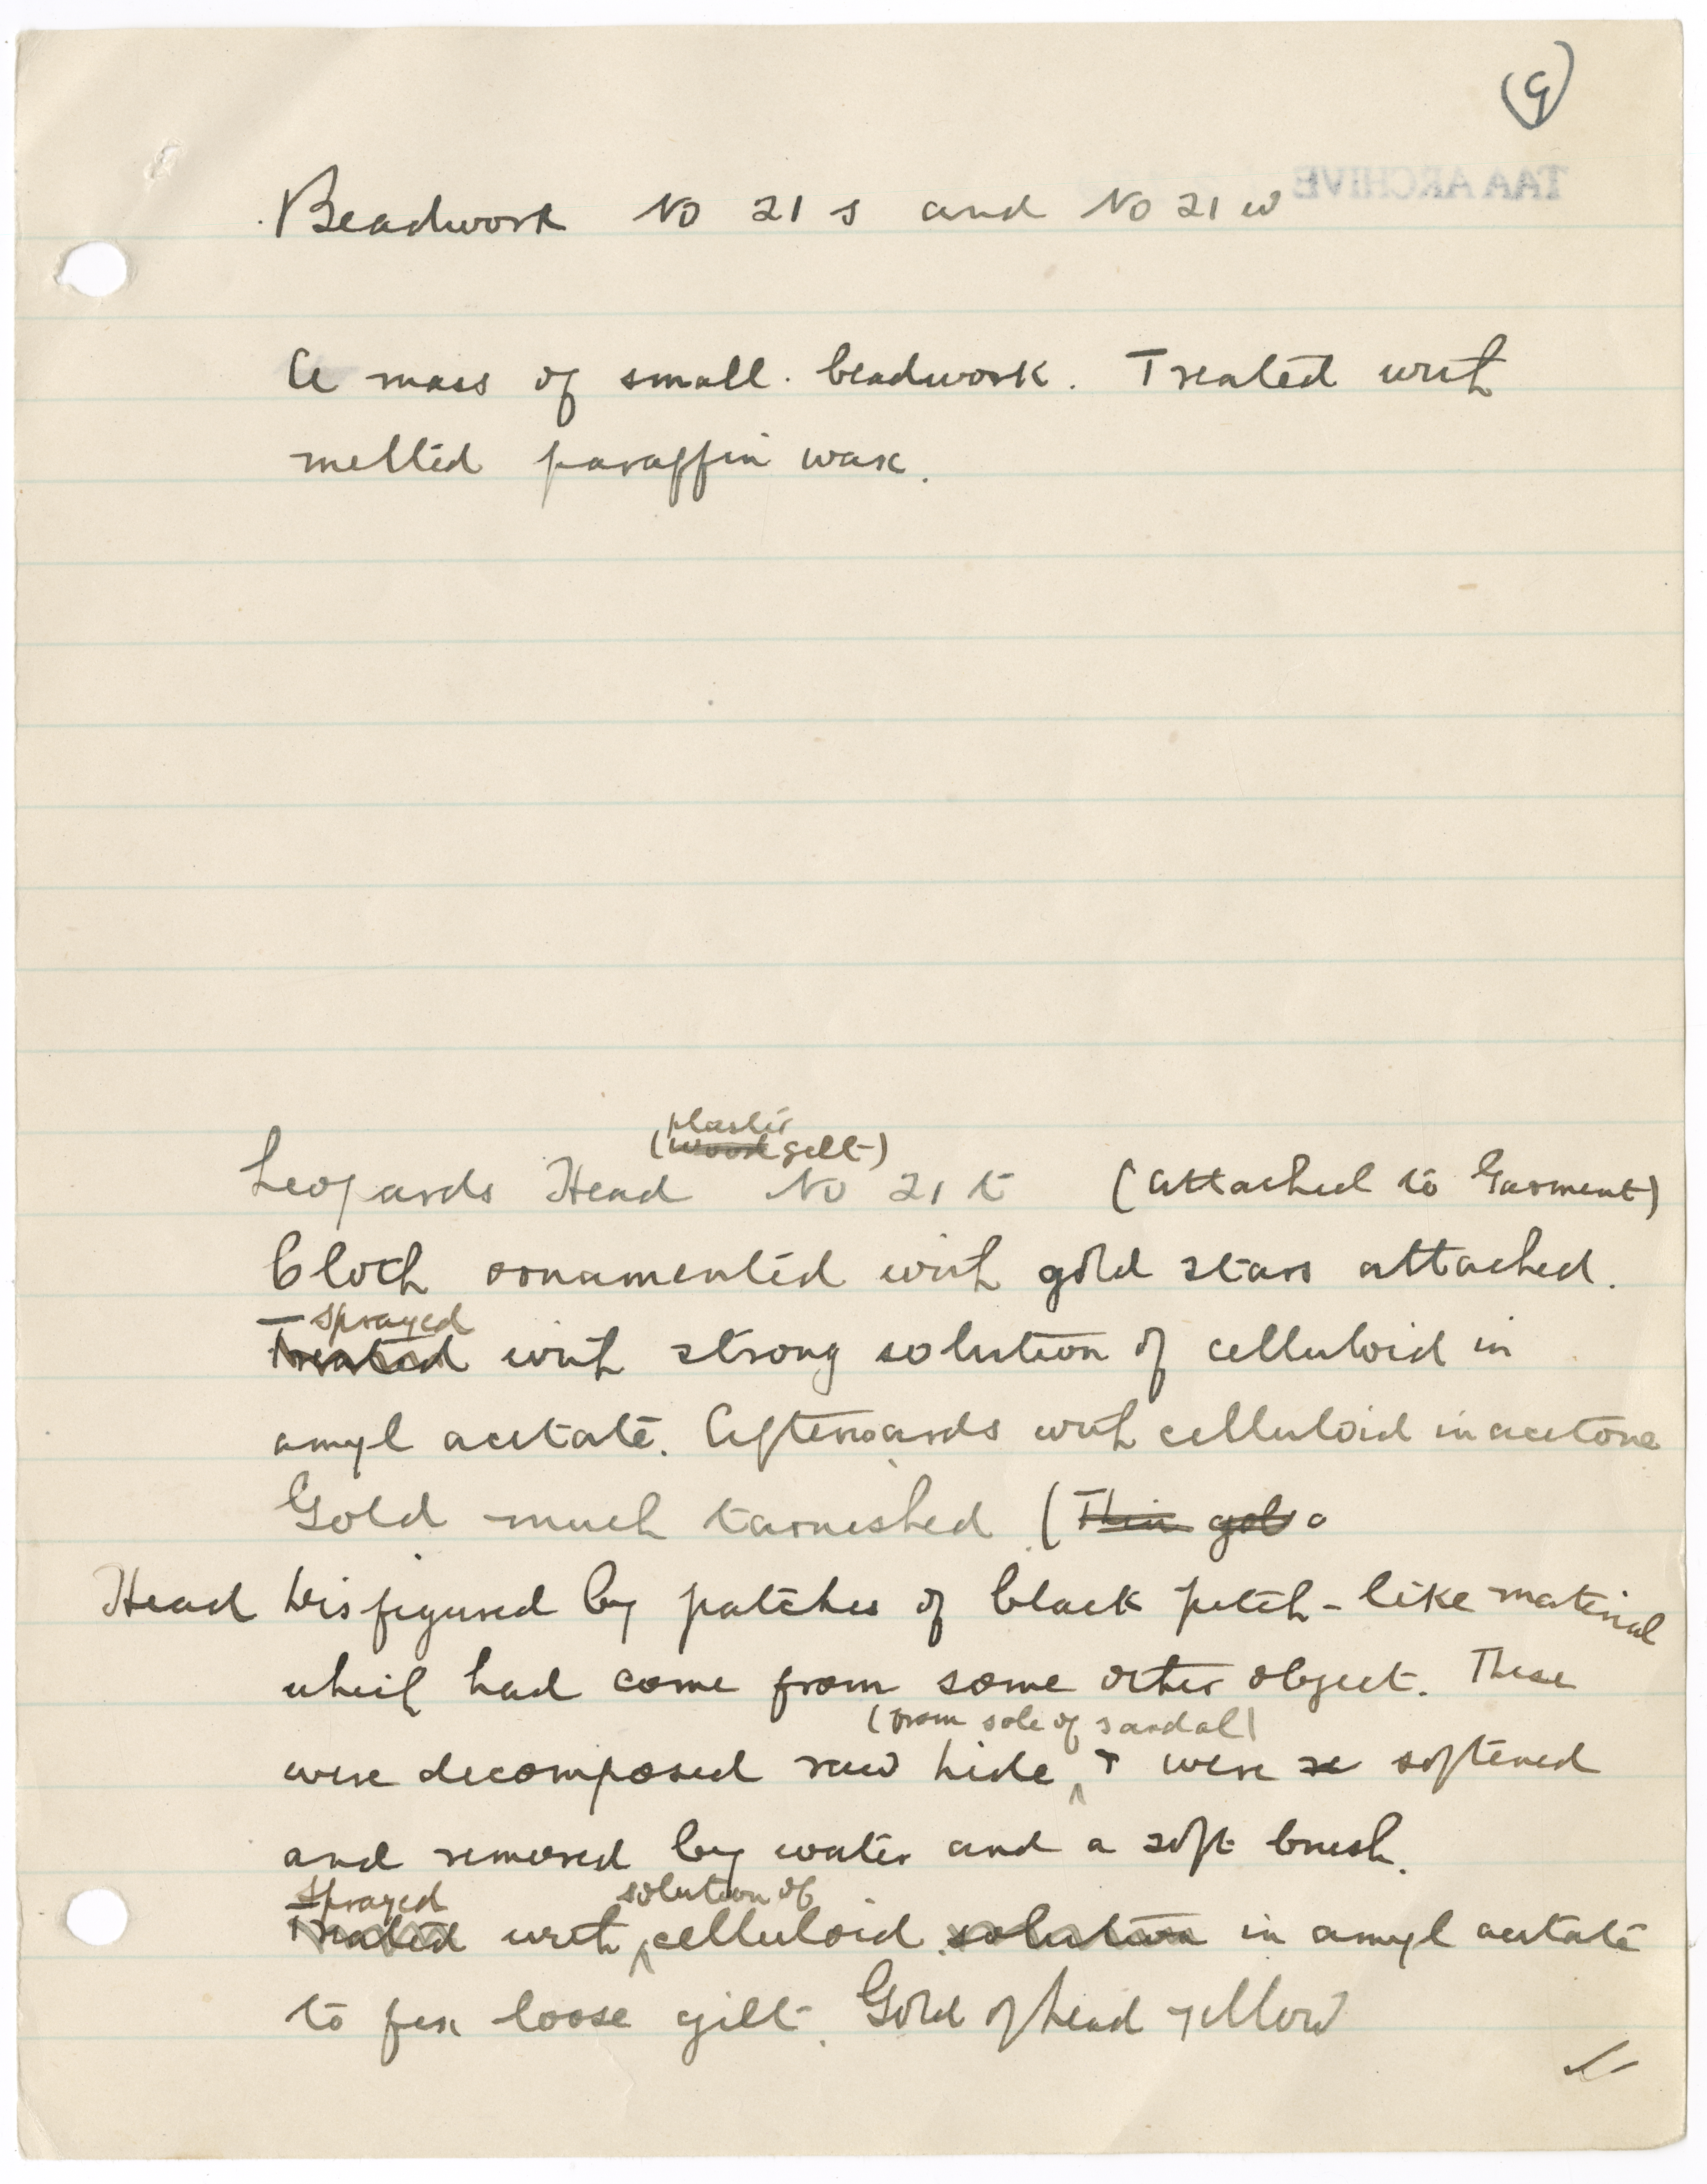 (9)
TAA ARCHIVE
Beadwork No 21 s and No 21 w
A mass of small beadwork. Treated with
melted paraffin wax.
plaster
(wood gilt)
Leopards Head No 21 t (attached to Garment)
Cloth ornamented with gold stars attached.
Sprayed
Treated with strong solution of celluloid in
amyl acetate. Afterwards with celluloid in acetone
Gold much tarnished (Thin gold
Head disfigured by patches of black pitch-like material
which had come from some other object. These
(from sole of sandal)
were decomposed raw hide, + were se softened
and removed by water and a soft brush.
Sprayed solution of
Treated with celluloid solution in amyl acetate
to fix loose gilt. Gold of head yellow